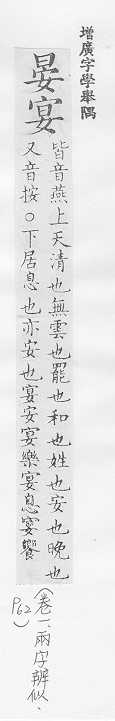 增廣字學舉隅
晏宴
皆音燕上天清也無雲也罷也和也姓也安也晚也
又音按○下居息也亦安也宴安宴樂宴息宴饗
(卷一、兩字辨似、
P62)